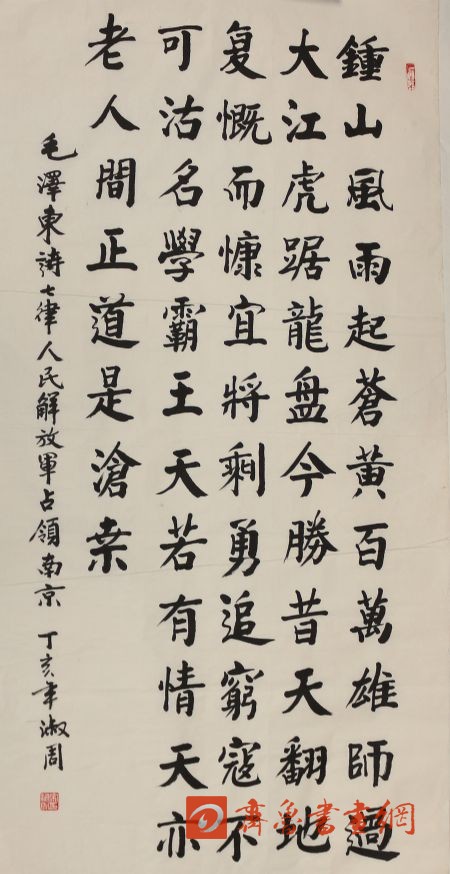 鍾山風雨起蒼黃百萬雄師過
大江虎踞龍盤今勝昔天翻地
复慨而慷宜將剩勇追窮寇不
可沽名學霸王天若有情天亦
老人間正道是滄桒
毛澤東詩七律人民解放軍占領南京 丁亥年淑周
齊魯書畫網